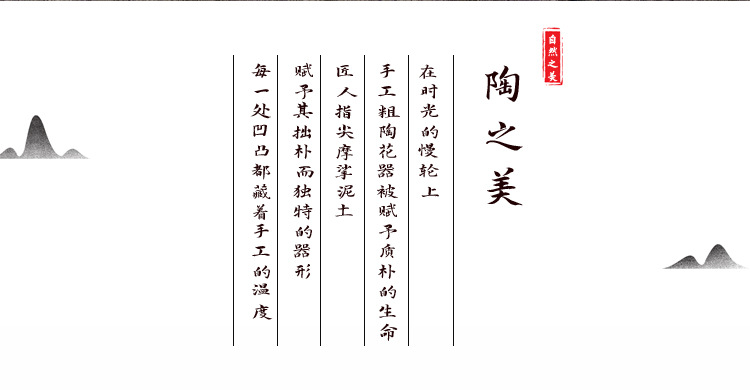 自然之美
陶之美
在时光的慢轮上
手工粗陶花器被赋予质朴的生命
匠人指尖摩挲泥土
赋予其拙朴而独特的器形
每一处凹凸都藏着手工的温度